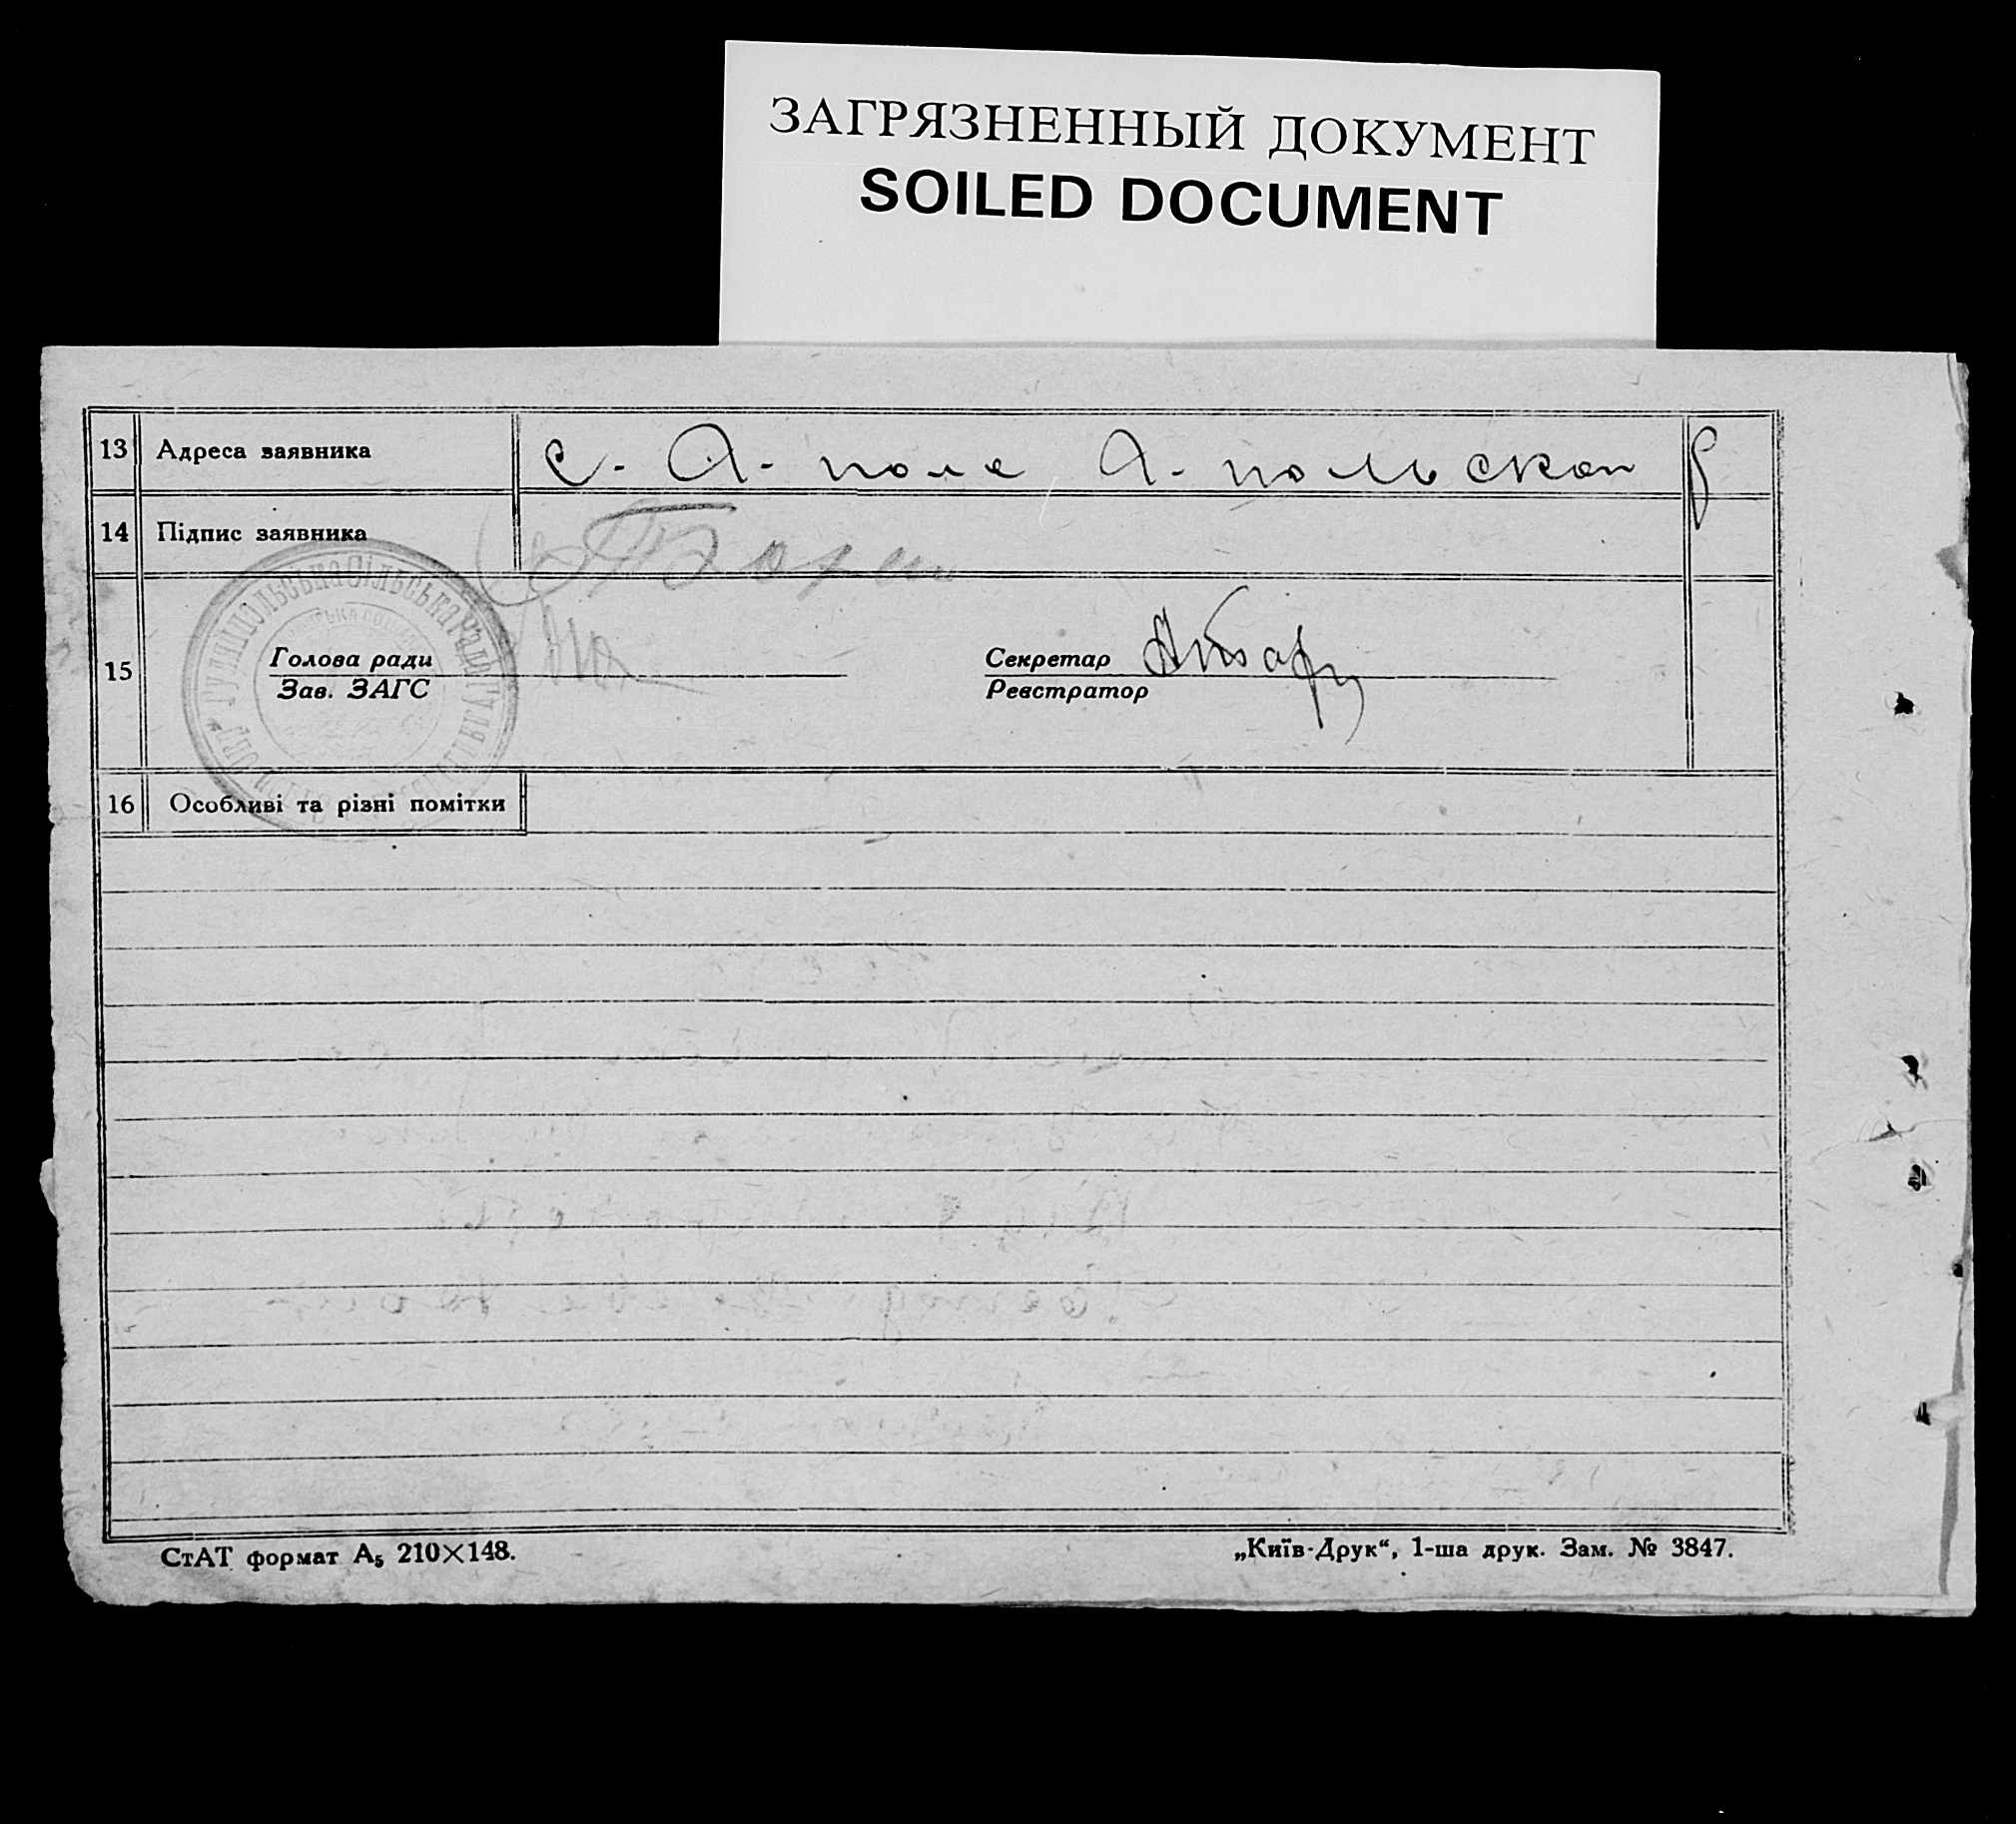 ЗАГРЯЗНЕННЫЙ ДОКУМЕНТ
SOILED DOCUMENT
13 Адреса заявника с. А-поле А-польськоп р
14 Підпис заявника
15 Голова ради Секретар
Зав. ЗАГС Реєстратор
16 Особливі та різні помітки
СтАТ формат А₅ 210×148.
„Київ-Друк“, 1-ша друк. Зам. № 3847.